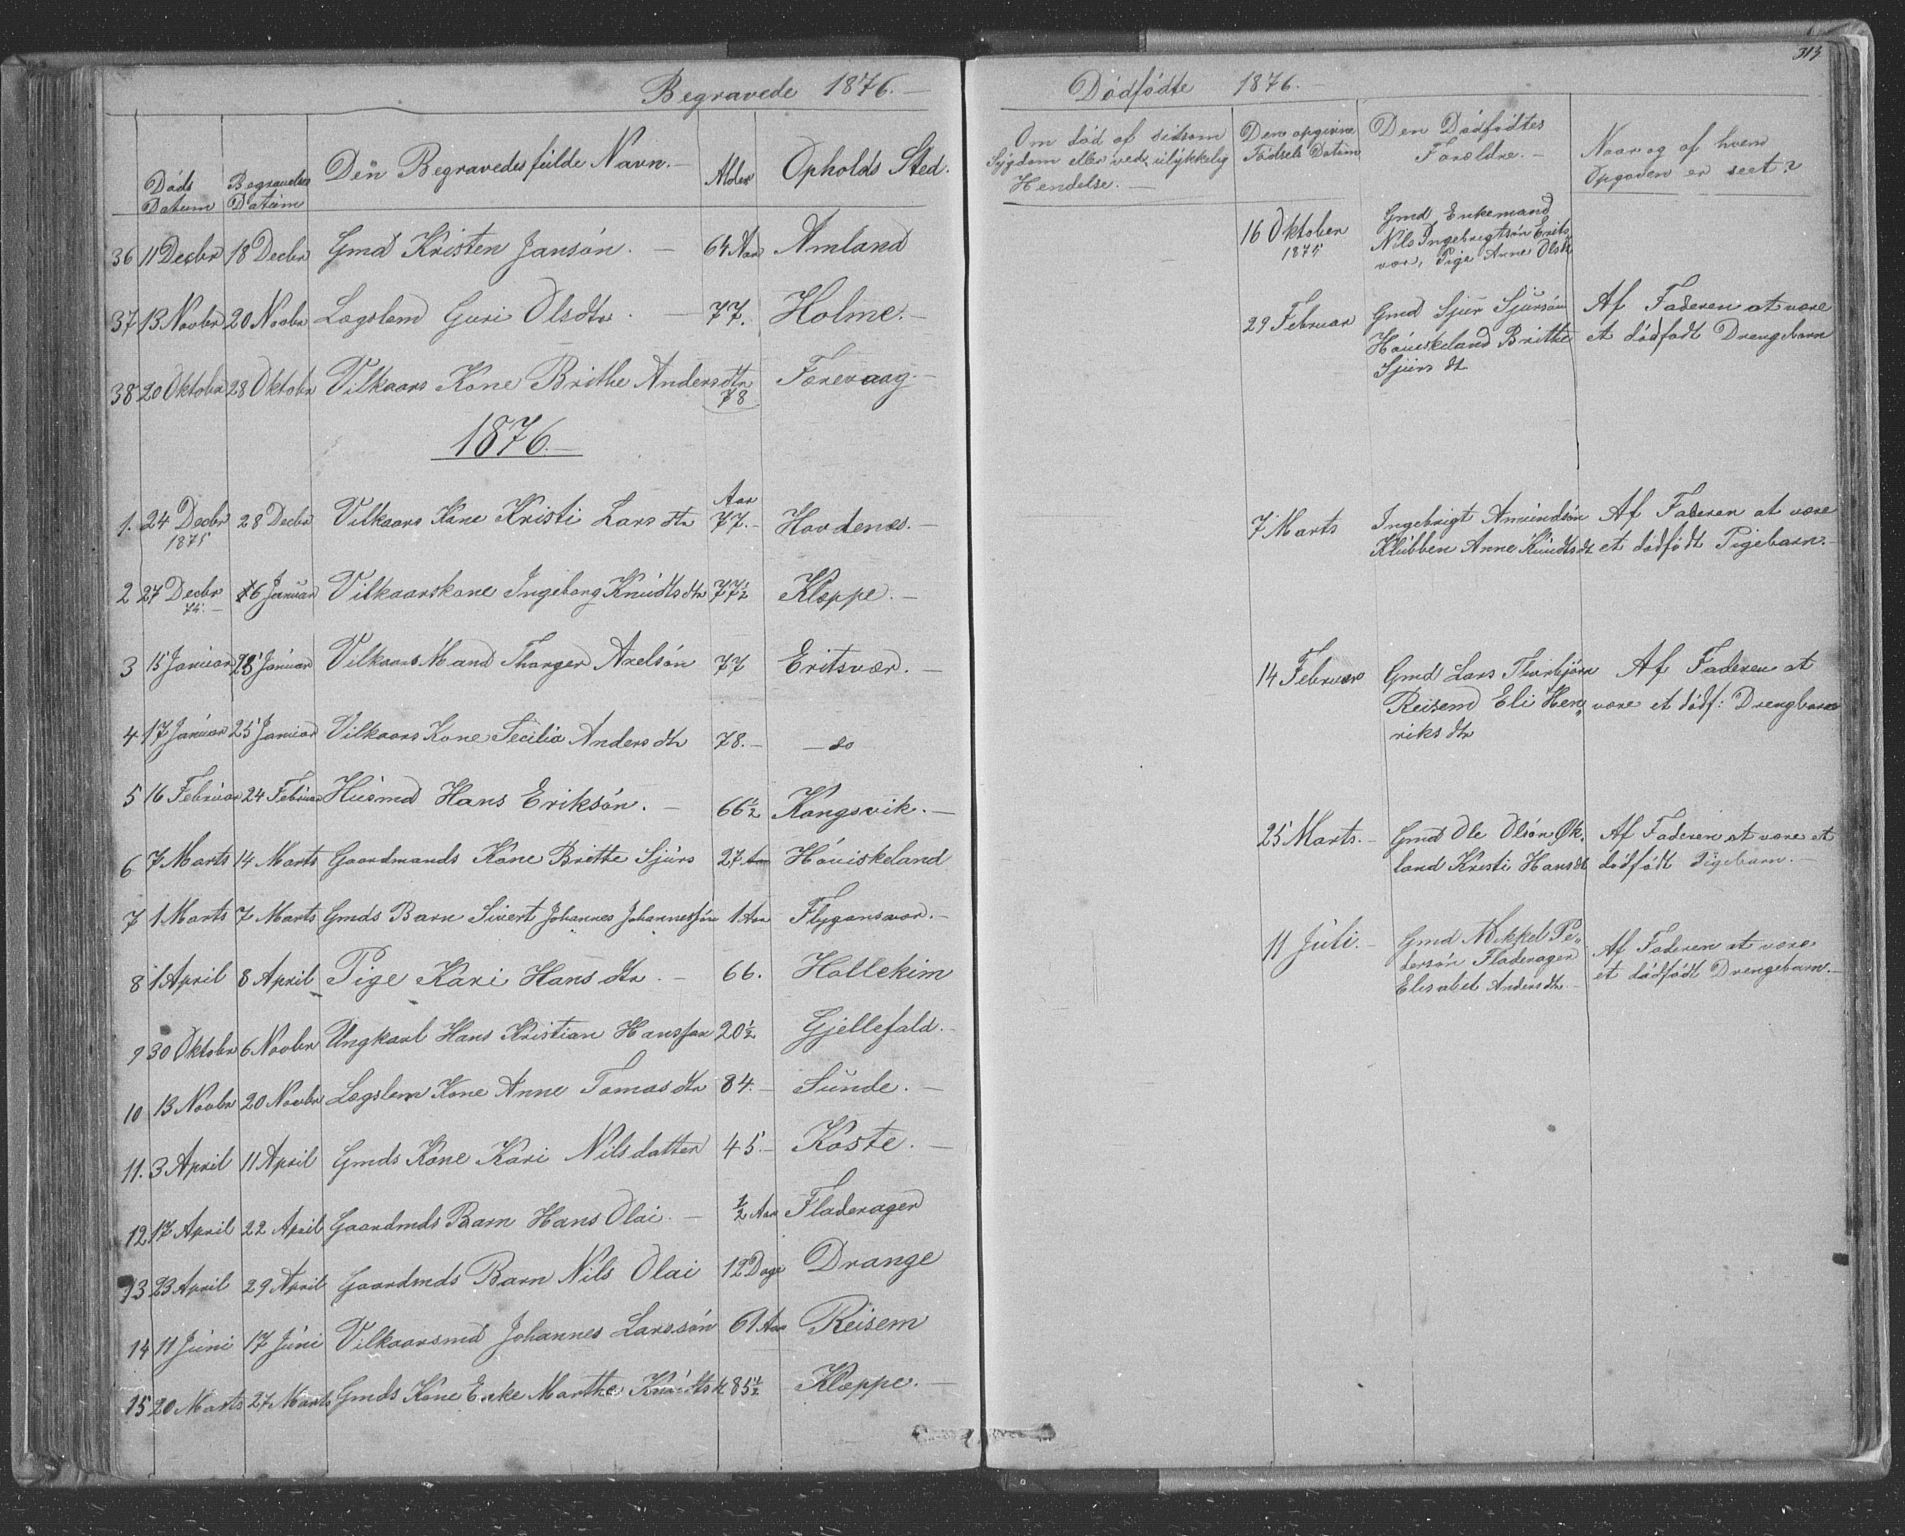 Begravede 1876.-
Døds Datum Begravelses Datum Den Begravedes fulde Navn.- Alder Opholds Sted.
36 11 Decbr 18 Decbr Gmd Kristen Jansón.- 64 Aar Amland
37 13 Novbr 20 Novbr Lægslem Guri Olsdtr.- 77. Holme.-
38 20 Oktobr 28 Oktobr Vilkaars Kone Brithe Andersdtr 78 Færevaag.-
1876.-
1. 24 Decbr 1875 28 Decbr Vilkaars Kone Kristi Larsdtr Aar 77.- Hovdenæs.-
2 27 Decbr 75.- 16 Januar Vilkaarskone Ingeborg Knudtsdtr 77½ Kleppe.-
3 15 Januar 25 Januar Vilkaars Mand Thorger Axelsón 77 Eritsvær.-
4 17 Januar 25 Januar Vilkaars Kone Secilia Andersdtr 78.- - do
5 16 Februar 24 Februar Husmd Hans Eriksón.- 66½ Kongsvik.-
6 7 Marts 14 Marts Gaardmands Kone Brithe Sjurs 27 Aar Hóuiskeland
7 1 Marts 7 Marts Gmds Barn Sivert Johannes Johannessón 1 Aar Flygansvær.-
8 1 April 8 April Pige Kari Hansdtr.- 66. Hollekim
9 30 Oktobr 6 Novbr Ungkarl Hans Kristian Hanssøn 20½ Gjellefald.-
10 13 Novbr 20 Novbr Lægslem Kone Anne Tomasdtr 84.- Sunde.-
11. 3 April 11 April Gmds Kone Kari Nilsdatter 45.- Koste.-
12 17 April 22 April Gaardmds Barn Hans Olai.- ½ Aar Fladerager
13 23 April 29 April Gaardmds Barn Nils Olai 12 Dage Drange
14 11 Juni 17 Juni Vilkaarsmd Johannes Larssón 61 Aar Reisem
15 20 Marts 27 Marts Gmds Kone Enke Marthe Knudtsd 85½ Kleppe.-
313
Dødfødte 1876.-
Om død af sidsom Sygdom eller ved ulykkelig Hendelse.- Den opgivne Fødsels Datum Den Dødfødtes Forældre.- Naar og af hvem Opgaven er seet?
16 Oktober 1875 Gmd Enkemand
Nils Ingebrigtsón Erits
vær, Pige Anne Olsdt
29 Februar Gmd Sjur Sjursón Af Faderen at være
Hóuiskeland Brithe et dødfødt Drengebarn
Sjursdt
7 Marts Ingebrigt Amundsón Af Faderen at være
Klubben Anne Knudtsdt et dødfødt Pigebarn.-
14 Februar Gmd Lars Thorbjørn Af Faderen at
Reisem Eli Hen„ være et dødf: Drengbarn
riksdtr
25 Marts.- Gmd Ole Olsón Øk. Af Faderen at være et
land Kristi Hansdt dødfødt Pigebarn.-
11 Juli.- Gmd Mikkel Pe„ Af Faderen at være
dersón Fladerager et dødfødt Drengebarn.-
Elisabet Andersdtr.-